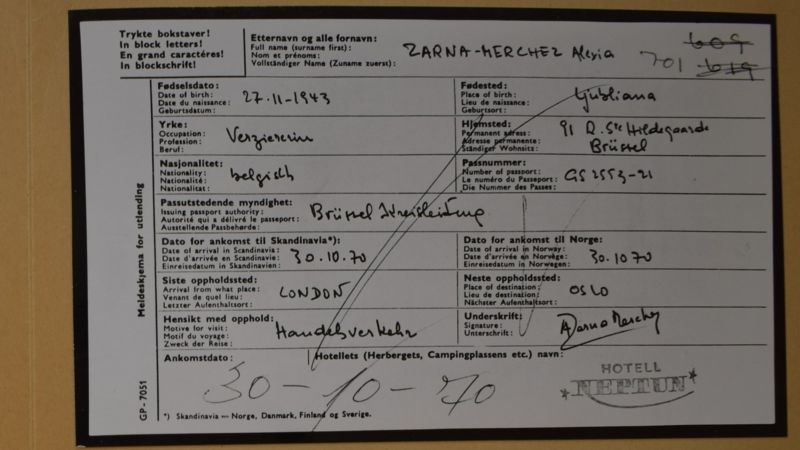 Trykte bokstaver!
In block letters!
En grand caractéres!
In blockschrift!
Etternavn og alle fornavn:
Full name (surname first):
Nom et prénoms:
Vollständiger Name (Zuname zuerst):
ZARNA-MERCHEZ Alexia
701
609
619
Fødselsdato:
Date of birth:
Date du naissance:
Geburtsdatum:
27.11-1943
Fødested:
Place of birth:
Lieu de naissance:
Geburtsort:
Ljubliana
Yrke:
Occupation:
Profession:
Beruf:
Verziererin
Hjemsted:
Permanent adress:
Adresse permanente:
Ständiger Wohnsitz:
91 R. Ste Hildegaarde
Brüssel
Nasjonalitet:
Nationality:
Nationalité:
Nationalitat:
belgisch
Passnummer:
Number of passport:
Le numéro du Passeport:
Die Nummer des Passes:
GS 2553-21
Passutstedende myndighet:
Issuing passport authority:
Autorité qui a délivré le passeport:
Ausstellende Passbehørde:
Brüssel Kreisleitung
Dato for ankomst til Skandinavia*):
Date of arrival in Scandinavia:
Date d'arrivée en Scandinavie:
Einreisedatum in Skandinavien:
30.10.70
Dato for ankomst til Norge:
Date of arrival in Norway:
Date d'arrivée en Norvège:
Einreisedatum in Norwegen:
30.10 70
Siste oppholdssted:
Arrival from what place:
Venant de quel lieu:
Letzter Aufenthaltsort:
LONDON
Neste oppholdssted:
Place of destination:
Lieu de destination:
Nächster Aufenthaltsort:
OSLO
Hensikt med opphold:
Motive for visit:
Motif du voyage:
Zweck der Reise:
Handelsverkehr
Underskrift:
Signature:
Unterschrift:
Ankomstdato:
30-10-70
Hotellets (Herbergets, Campingplassens etc.) navn:
HOTELL
*NEPTUN*
*) Skandinavia = Norge, Danmark, Finland og Sverige.
Meldeskjema for utlending
GP-7051